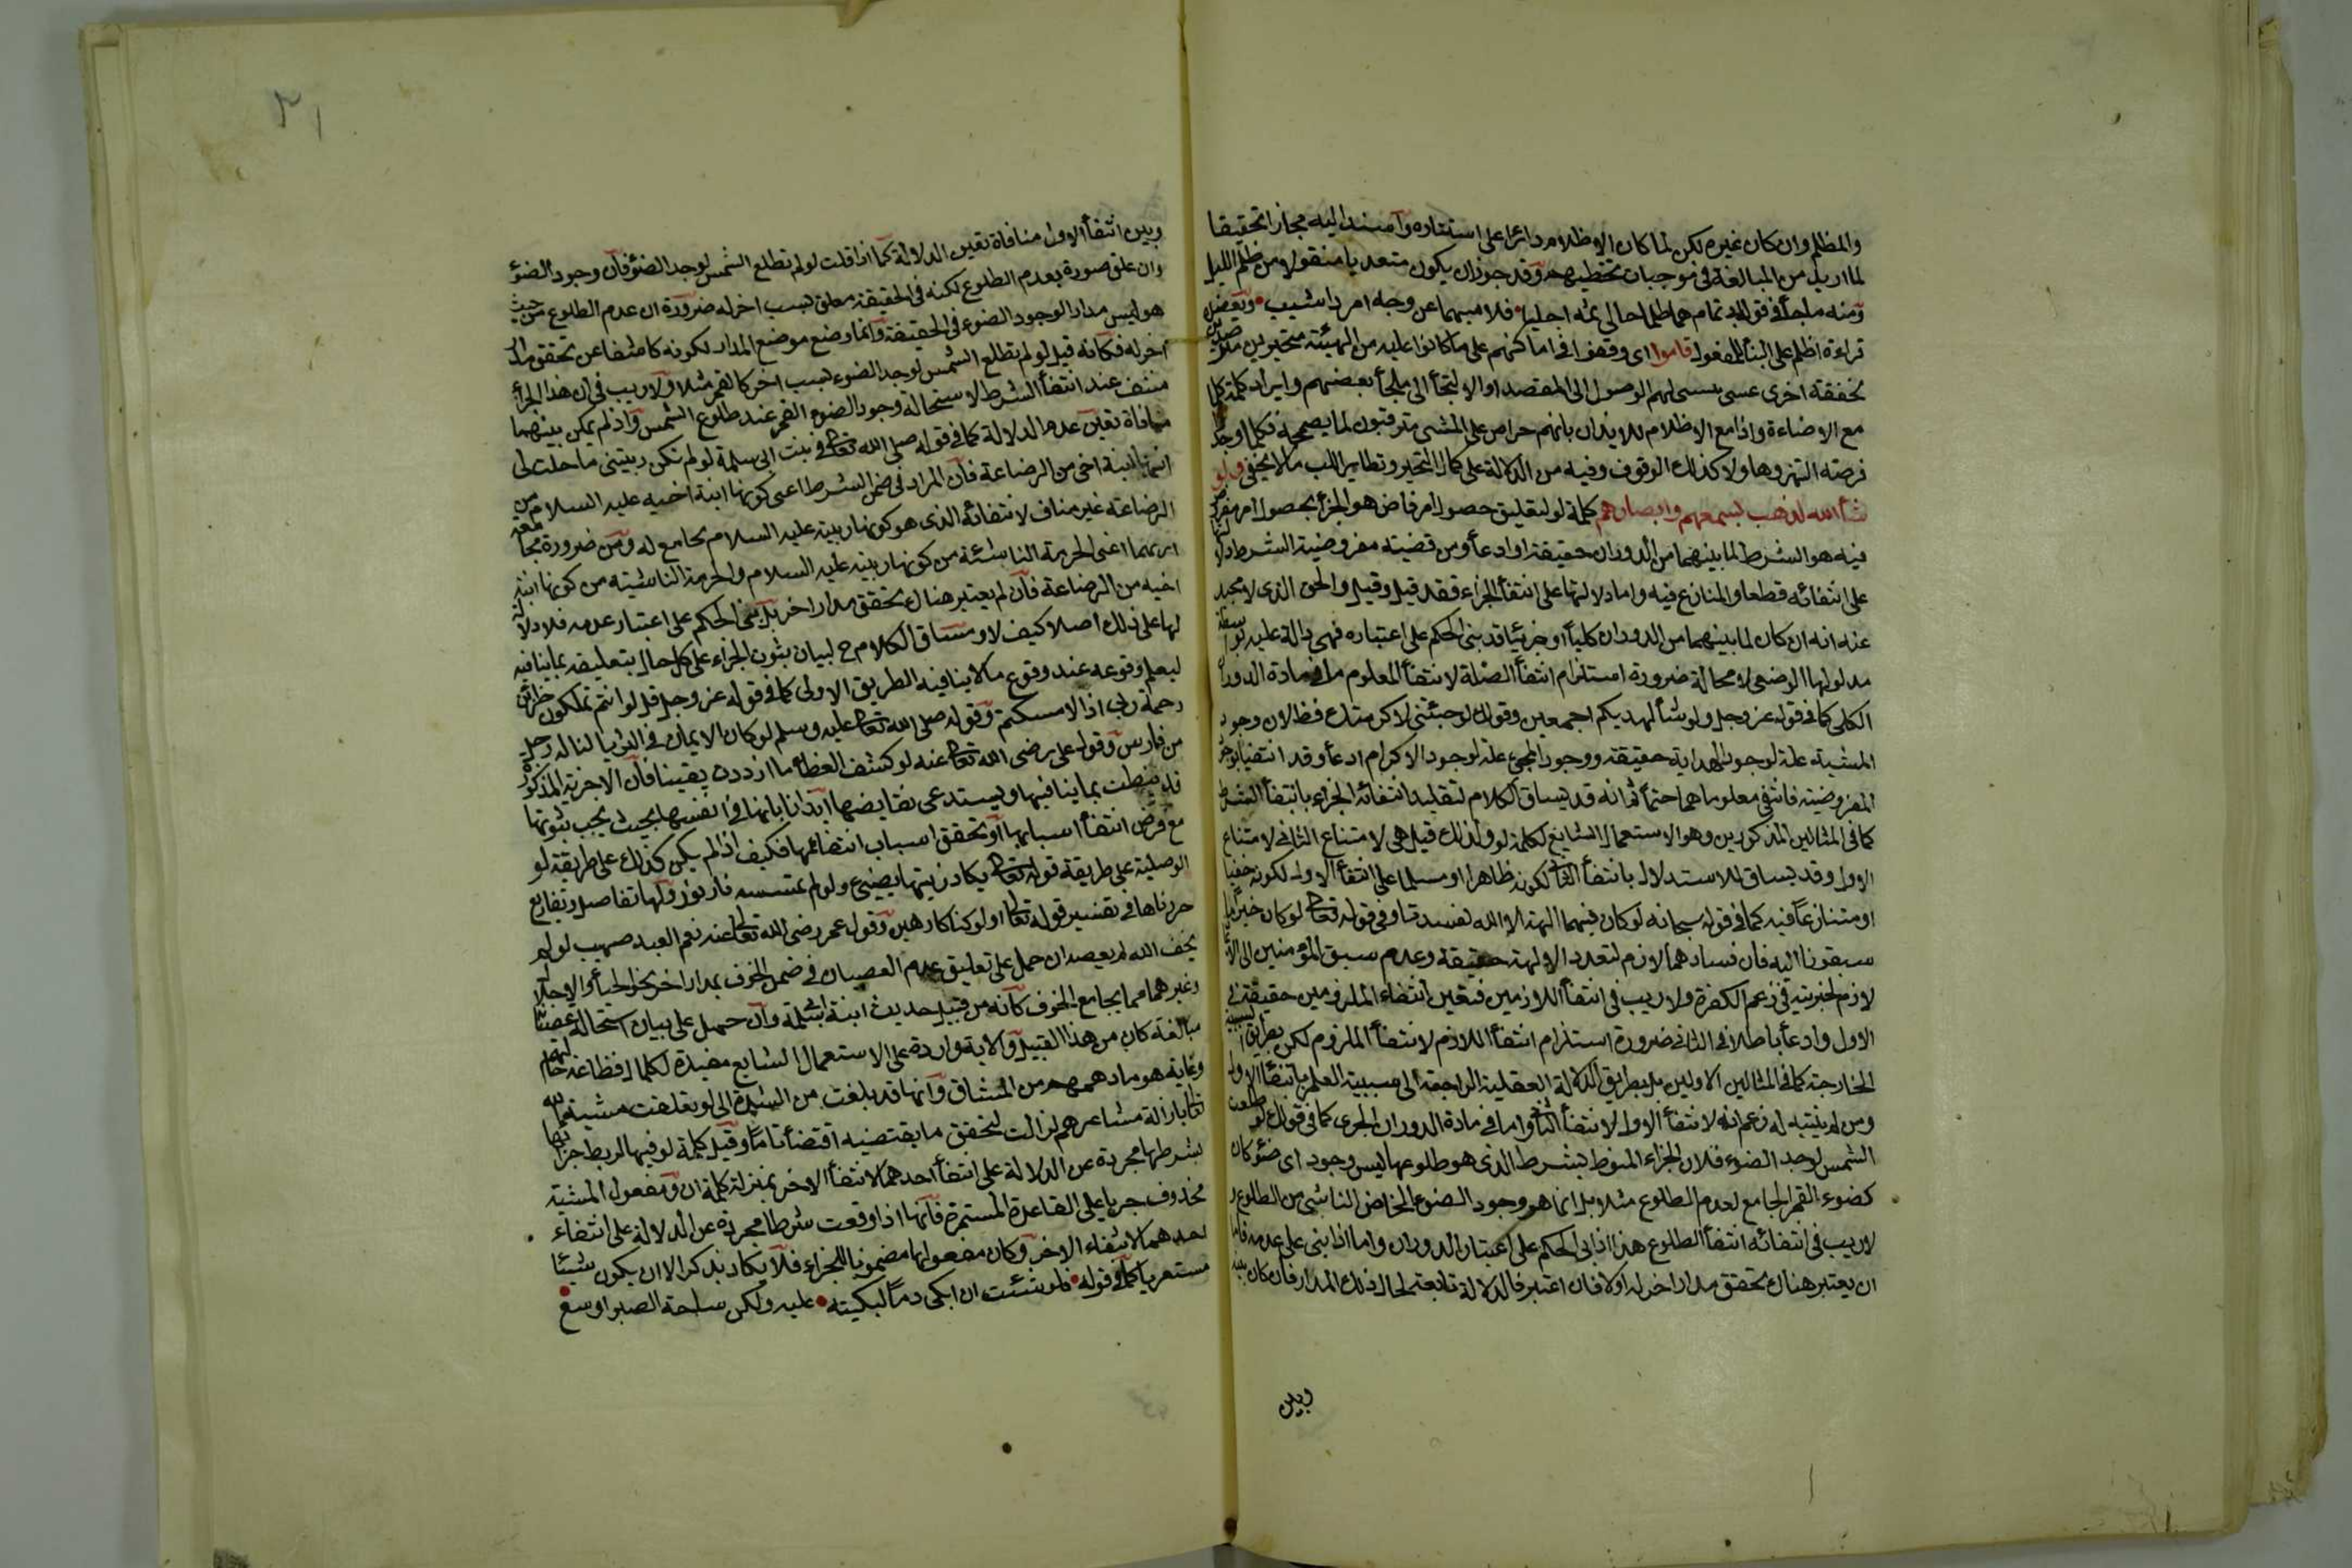 والمظلم وان كان غيره لكن لما كان الاظلام دائرا على استتاره وآمسند اليه مجازا تحقيقا
لما اريد من المبالغة فى موجبات تخطيهم وقد جوزان يكون متعديا منقولا من ظلم الليل
ومنه ما جأ فى قول ابى تمام هما اظلما حالى ثمه اجليا فلا ميهما عن وجه امرد اشيب ويعضده
قراءة اظلم على البنأ للمفعول قاموا اى وقفوا فى اماكنهم على ما كانوا عليه من الهيئة متحيرين مترصدين
لخفقة اخرى عسى يتسنى لهم الوصول الى المقصد او الالتجأ الى ملجأ يعصمهم وايراد كلمة كلما
مع الاضاءة واذا مع الاظلام للايذان بانهم حراص على المشى مترقبون لما يصححه فكلما وجدوا
فرصة انتهزوها ولا كذلك الوقوف وفيه من الدلالة على كمال التحير وتطاير اللب ما لا يخفى ولو
شأ الله لذهب بسمعهم وابصارهم كلمة لو لتعليق حصول امر فاض هو الجزأ بحصول امر مفروض
فيه هو الشرط لما بينهما من الدوران حقيقة او ادعأ ومن قضيته مفروضية الشرط دلالتها
على انتفائه قطعا والمنازع فيه واما دلالتها على انتفأ الجزاء فقد قيل وقيل والحق الذى لا محيد
عنه انه ان كان لما بينهما من الدوران كلياً او جزئيا قد بنى الحكم على اعتباره فهى دالة عليه بواسطة
مدلولها الوضعى لا محالة ضرورة استلزام انتفأ العلة لانتفأ المعلوم ما فى مادة الدوران
الكلى كما فى قوله عز وجل ولو شأ لهديكم اجمعين وقولك لو جئتنى لاكرمتك فظ لان وجود
المشيئة علة لوجود الهداية حقيقة ووجود المجئ علة لوجود الاكرام ادعأ وقد انتفيا بوجود
المفروضية فانتفى معلوماهما حتماً ثم انه قد يساق الكلام لتعليل انتفائه الجزاء بانتفأ الشرط
كما فى المثالين المذكورين وهو الاستعمال الشايع لكلمة لو ولذلك قيل هى لامتناع الثانى لامتناع
الاول وقد يساق للاستدلال بانتفأ الثانى لكونه ظاهرا او مسلما على انتفأ الاول لكونه خفيا
او متنازعاً فيه كما فى قوله سبحانه لو كان فيهما آلهة الا الله لفسدتا وفى قوله تعالى لو كان خيراً ما
سبقونا اليه فان فسادهما لازم لتعدد الالهة حقيقة وعدم سبق المؤمنين الى الايمان
لازم لخيريته فى زعم الكفرة ولا ريب فى انتفأ اللازمين فتعين انتفاء الملزومين حقيقة فى
الاول وادعأ باطلا فى الثانى ضرورة استلزام انتفأ اللازم لانتفأ الملزوم لكن بطريق السببية
الخارجة كما فى المثالين الاولين بل بطريق الدلالة العقلية الراجعة الى سببية العلم بانتفأ الاول
ومن لم يتنبه له زعم انه لانتفأ الاول لانتفأ الثانى واما فى مادة الدوران الجزئى كما فى قولك لو طلعت
الشمس لوجد الضوء فلان الجزاء المنوط بشرط الذى هو طلوعها ليس وجود اى ضؤ كان
كضوء القمر الجامع لعدم الطلوع مثلا بل انما هو وجود الضوء الخاص الناشى من الطلوع و
لا ريب فى انتفائه انتفأ الطلوع هذا اذا بنى الحكم على اعتبار الدوران واما اذا بنى على عدمه فاما
ان يعتبر هناك تحقق مدار اخر له اولا فان اعتبر فالدلالة تابعة لحال ذلك المدار فان كان بينه
وبين
٢١
وبين انتفأ الاول منافاة تعين الدلالة كما اذا قلت لو لم تطلع الشمس لوجد الضوء فان وجود الضوء
وان علق صورة بعدم الطلوع لكنه فى الحقيقة معلق بسبب اخر له ضرورة ان عدم الطلوع من حيث
هو ليس مدار الوجود الضوء فى الحقيقة وانما وضع موضع المدار لكونه كاشفا عن تحقق مدار
اخر له فكانه قيل لو لم تطلع الشمس لوجد الضوء بسبب اخر كالقمر مثلا ولا ريب فى ان هذا الجزأ
منتف عند انتفأ الشرط لاستحالة وجود الضوء القمرى عند طلوع الشمس واذ لم يكن بينهما
منافاة تعين عدم الدلالة كما فى قوله صلى الله تعالى فى بنت ابى سلمة لو لم تكن ربيبتى ما حلت لى
انها ابنة اخى من الرضاعة فان المراد فى ضمن الشرط اعنى كونها ابنة اخيه عليه السلام من
الرضاعة غير مناف لانتفائه الذى هو كونها ربيبة عليه السلام بل مجامع له ومن ضرورة مجامعة
اثريهما اعنى الحرمة الناشئة من كونها ربيبة عليه السلام والحرمة الناشئة من كونها ابنة
اخيه من الرضاعة فان لم يعتبر هناك تحقق مدار اخر بل بنى الحكم على اعتبار عدمه فلا دلالة
لها على ذلك اصلا كيف لا ومساق الكلام ح لبيان ثبوت الجزاء على كل حال بتعليقه بما ينافيه
ليعلم وقوعه عند وقوع ما لا ينافيه الطريق الاولى كما فى قوله عز وجل قل لو انتم تملكون خزائن
رحمة ربى اذا لامسكتم وقوله صلى الله تعالى عليه وسلم لو كان الايمان فى الثريا لناله رجل
من فارس وقول على رضى الله تعالى عنه لو كشف الغطأ ما ازددت يقينا فان الاجزية المذكورة
قد نيطت بما ينافيها ويستدعى نقايضها ايذانا بانها فى انفسها بحيث يجب ثبوتها
مع فرض انتفأ اسبابها او تحقق اسباب انتفائها فكيف اذا لم يكن كذلك على طريقة لو
الوصلية على طريقة قوله تعالى يكاد زيتها يضيئ ولو لم تمسسه نار نور ولها تفاصيل وتفاريع
حررناها فى تفسير قوله تعالى اولو كنا كارهين وقول عمر رضى الله تعالى عنه نعم العبد صهيب لو لم
يخف الله لم يعصه ان حمل على تعليق عدم العصيان فى ضمن الخوف بمدار اخر نحو الحيأ والاجلال
وغيرهما مما يجامع الخوف كانه من قبيل حديث ابنة ابى سلمة وان حمل على بيان استحالة عصيانه
مبالغة كان من هذا القبيل والاية واردة على الاستعمال الشايع مفيدة لكمال فظاعة حالهم
وغاية هو ما دهمهم من المشاق وانها قد بلغت من الشدة الى لو تعلقت مشية الله
تعالى بازالة مشاعرهم لزالت لتحقق ما يقتضيه اقتضأ تاماً وقيل كلمة لو فيها لربط جزائها
بشرطها مجردة عن الدلالة على انتفأ احدهما لانتفأ الاخر بمنزلة كلمة ان ومفعول المشية
محذوف جريا على القاعدة المستمرة فانها اذا وقعت شرطا مجردة عن الدلالة على انتفاء
احدهما لانتفاء الاخر وكان مفعولها مضمونا للجزاء فلا يكاد يذكر الا ان يكون شيئا
مستغربا كما فى قوله فلو شئت ان ابكى دماً لبكيته عليه ولكن ساحة الصبر اوسع